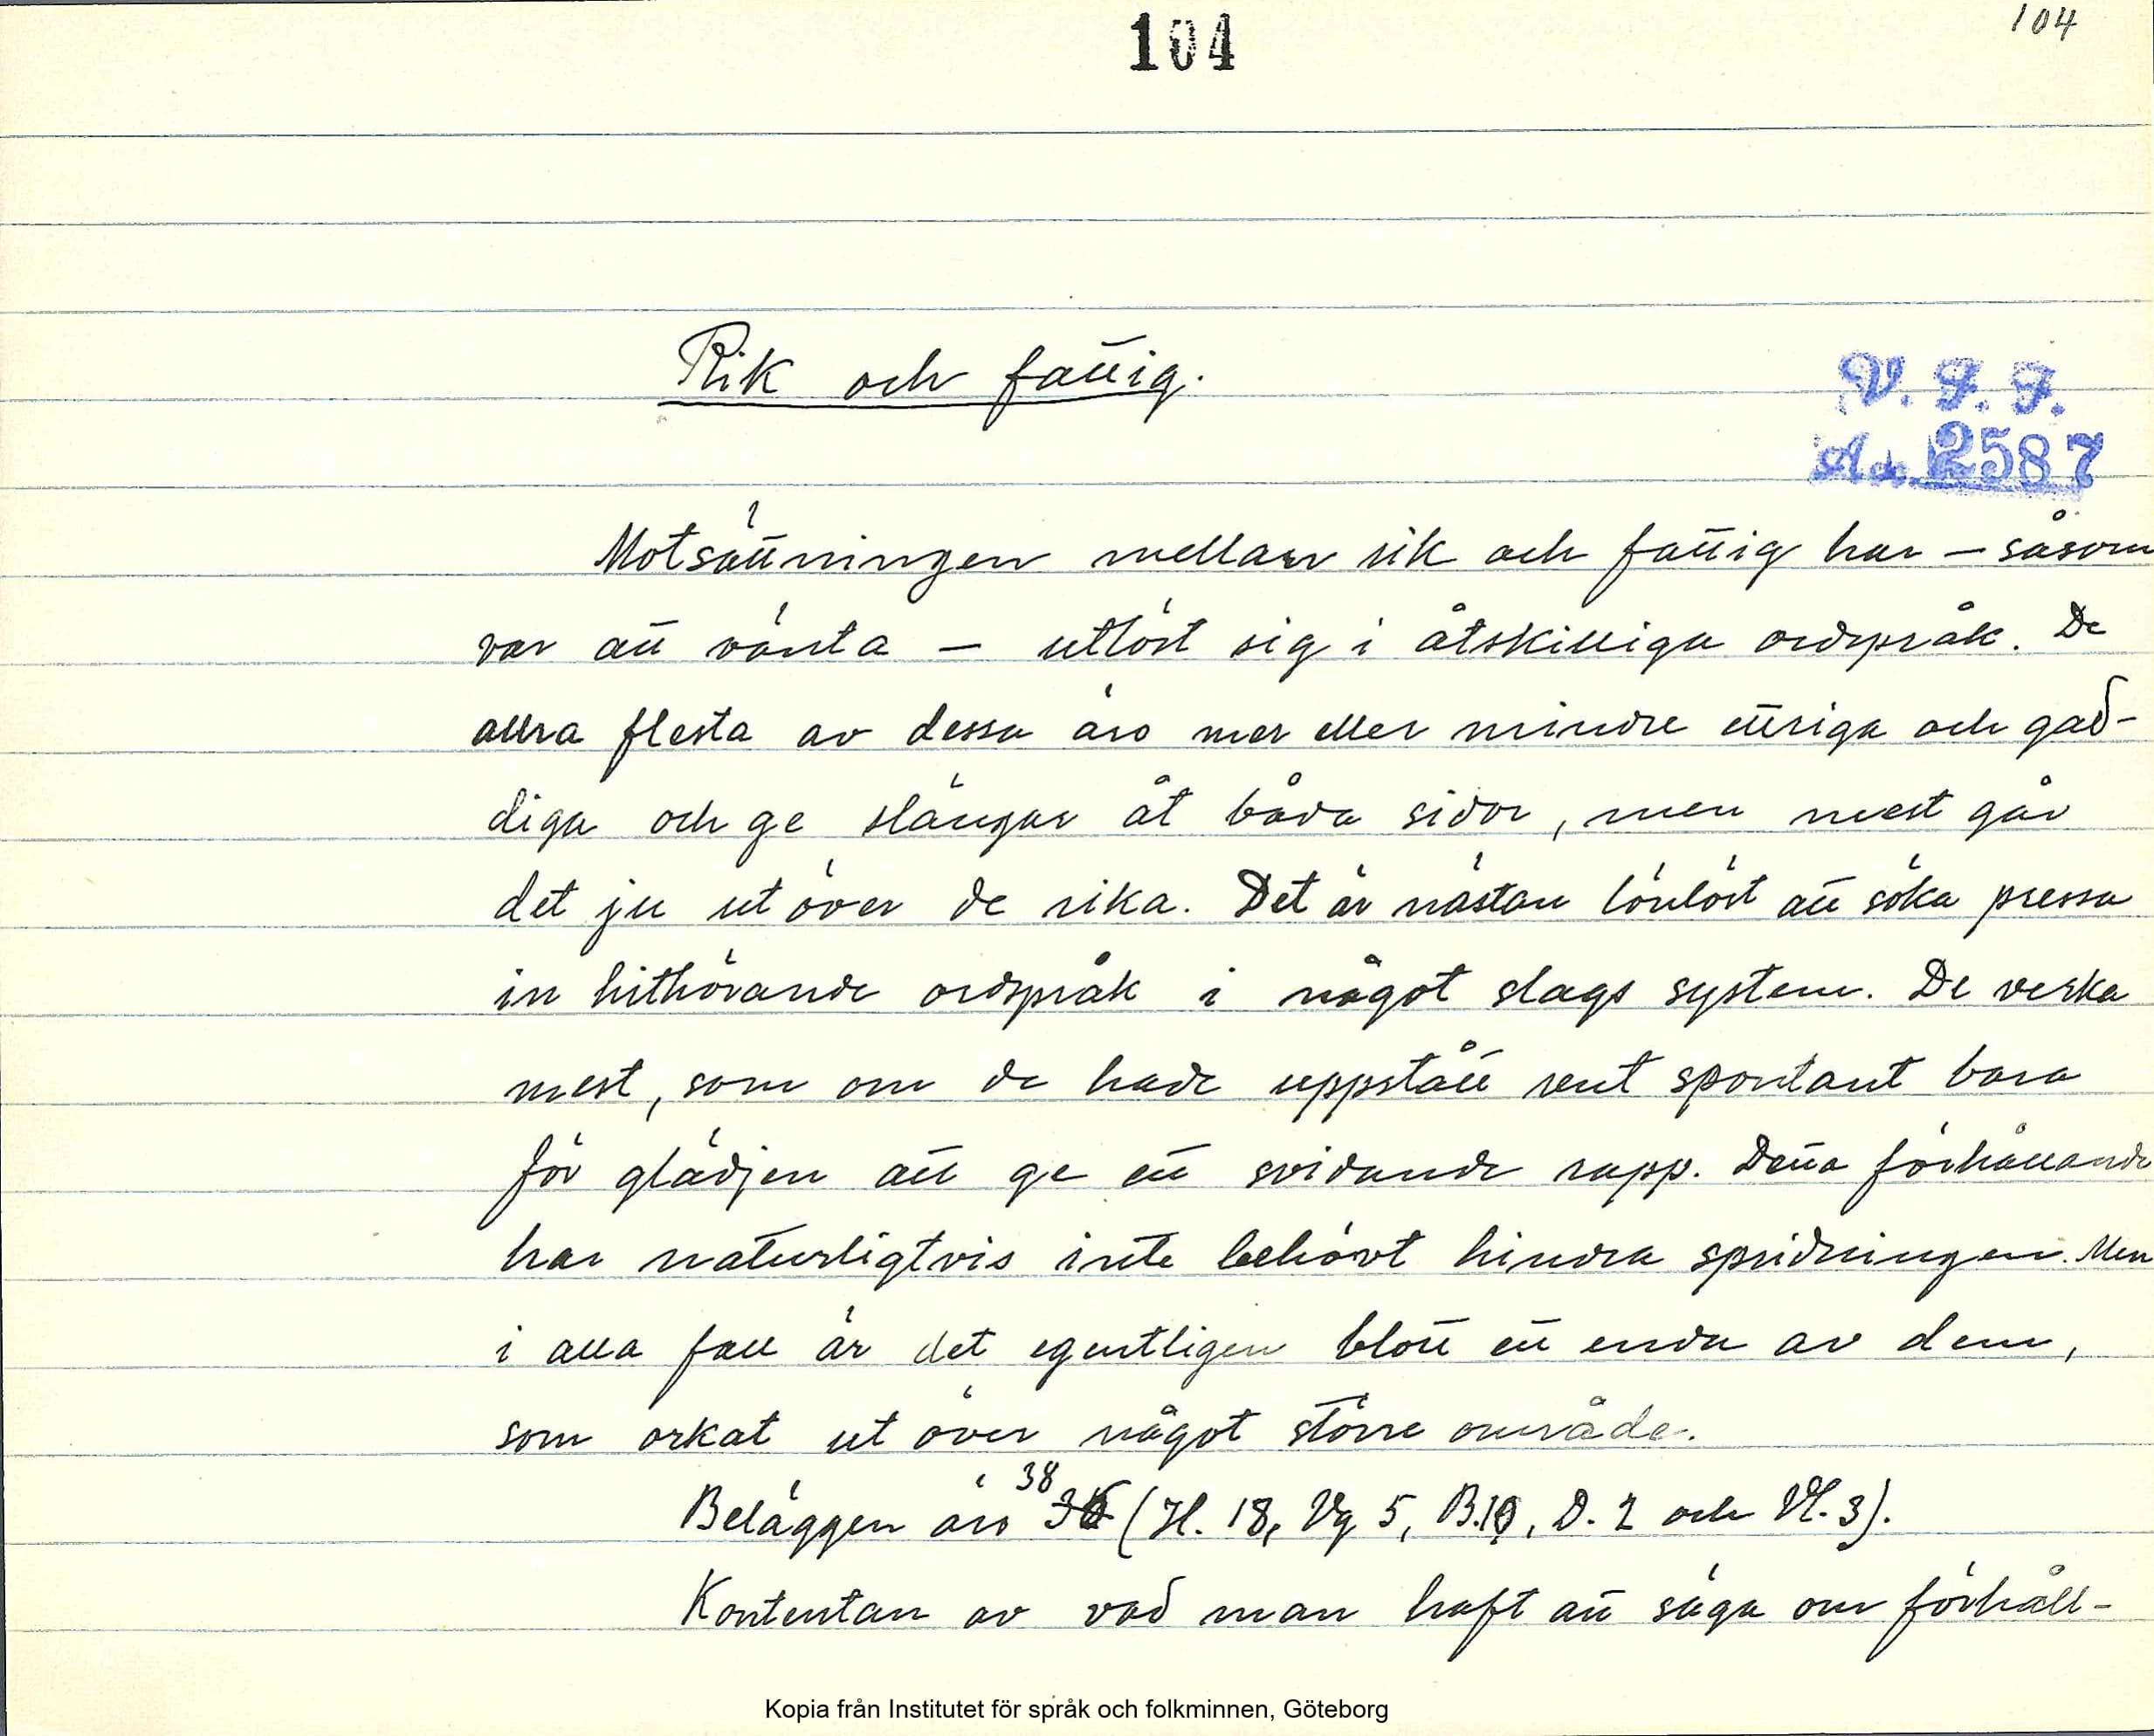 104
104
Rik och fattig.
V. F. F.
Ac. 2587
Motsättningen mellan rik och fattig har – såsom
var att vänta – utlöst sig i åtskilliga ordspråk. De
allra flesta av dessa äro mer eller mindre ettriga och gad-
diga och ge slängar åt båda sidor, men mest går
det ju ut över de rika. Det är nästan lönlöst att söka pressa
in hithörande ordspråk i något slags system. De verka
mest, som om de hade uppstått rent spontant bara
för glädjen att ge en svidande rapp. Detta förhållande
har naturligtvis inte behövt hindra spridningen. Men
i alla fall är det egentligen blott ett enda av dem,
som orkat ut över något större område.
Beläggen äro 38 (H. 18, Vg 5, B. 10, D. 2 och Vl. 3).
Kontentan av vad man haft att säga om förhåll-
Kopia från Institutet för språk och folkminnen, Göteborg